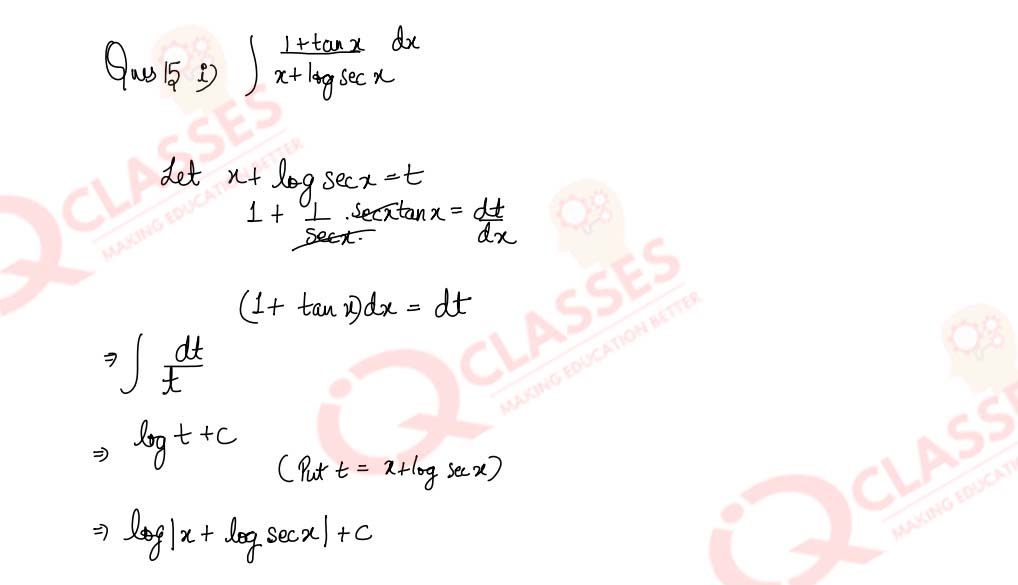 Ques 15 i) ∫ (1+tan x)/(x+log sec x) dx
Let x+ log sec x = t
1 + 1/sec x . sec x tan x = dt/dx
(1+ tan x)dx = dt
⇒ ∫ dt/t
⇒ log t + c
(Put t = x+log sec x)
⇒ log|x + log sec x| + c
CLASSES
MAKING EDUCATION BETTER
CLASSES
MAKING EDUCATION BETTER
CLASSES
MAKING EDUCATION